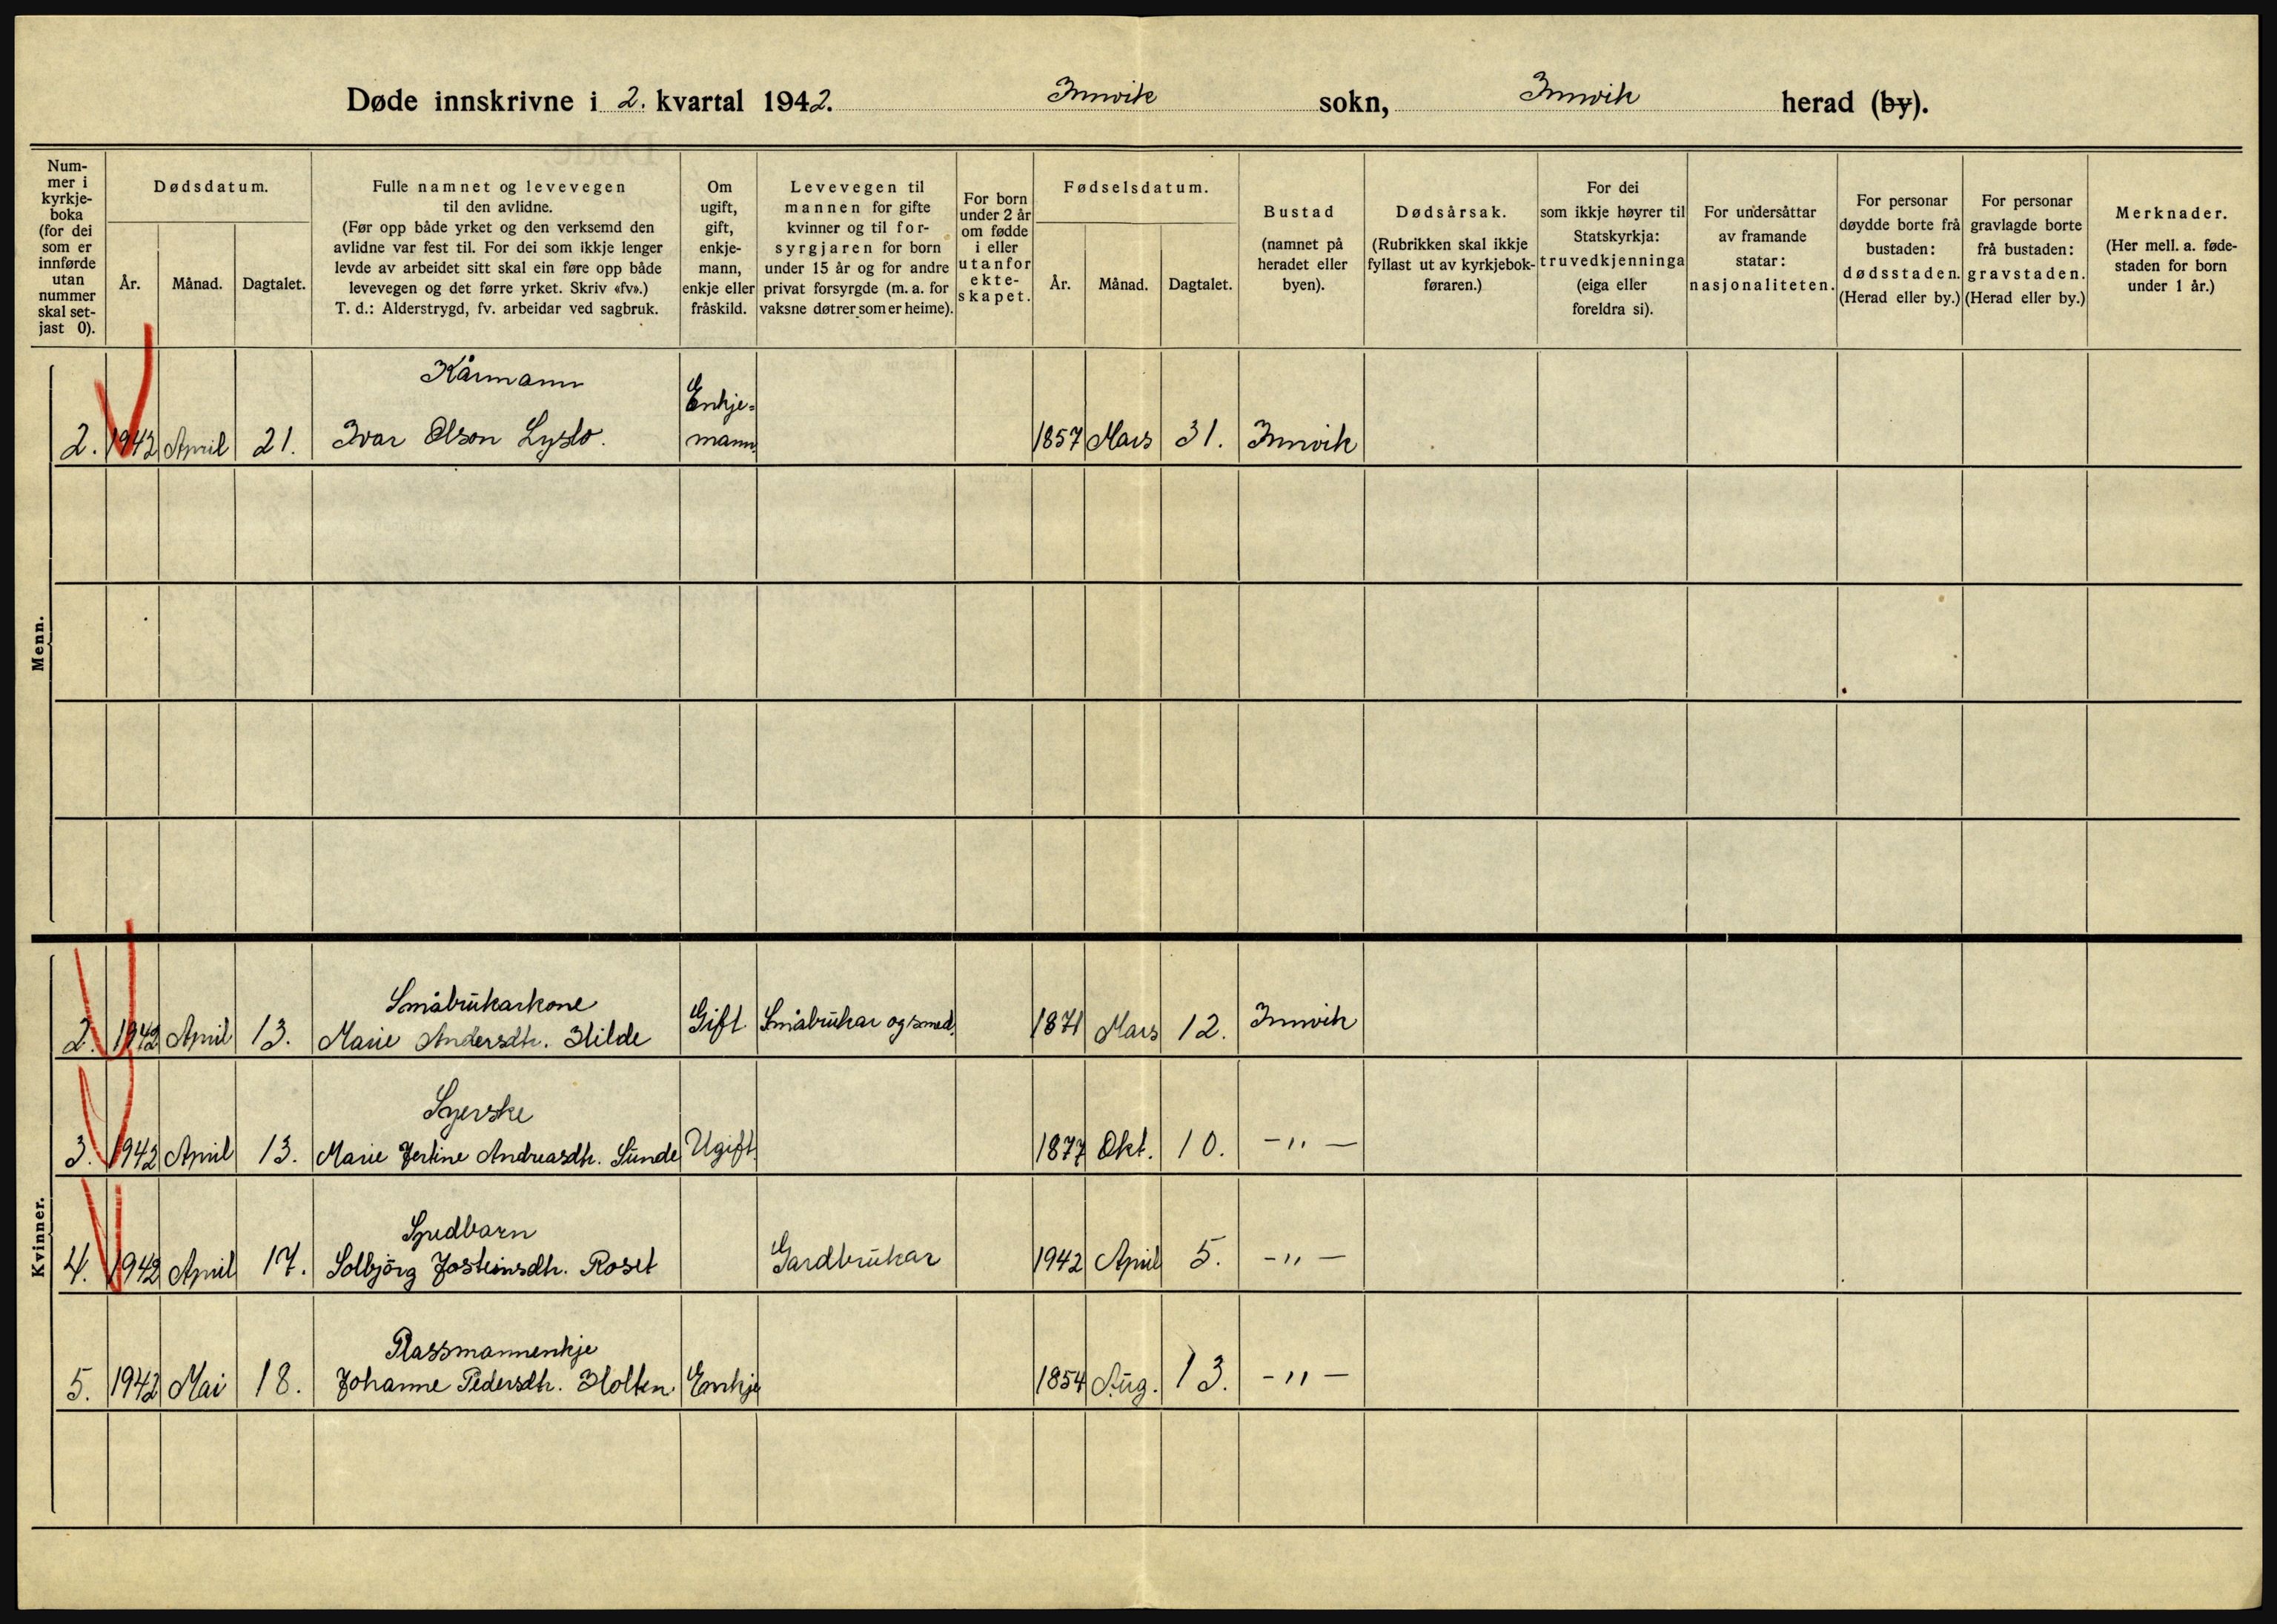 Døde innskrivne i 2. kvartal 1942. Innvik sokn, Innvik herad (by).
Nummer i kyrkjeboka (for dei som er innførde utan nummer skal setjast 0).
Dødsdatum.
År.
Månad.
Dagtalet.
Fulle namnet og levevegen
til den avlidne.
(Før opp både yrket og den verksemd den
avlidne var fest til. For dei som ikkje lenger
levde av arbeidet sitt skal ein føre opp både
levevegen og det førre yrket. Skriv «fv».)
T. d.: Alderstrygd, fv. arbeidar ved sagbruk.
Om
ugift,
gift,
enkje-
mann,
enkje eller
fråskild.
Levevegen til
mannen for gifte
kvinner og til for-
syrgjaren for born
under 15 år og for andre
privat forsyrgde (m. a. for
vaksne døtrer som er heime).
For born
under 2 år
om fødde
i eller
utanfor
ekte-
skapet.
Fødselsdatum.
År.
Månad.
Dagtalet.
Bustad
(namnet på
heradet eller
byen).
Dødsårsak.
(Rubrikken skal ikkje
fyllast ut av kyrkjebok-
føraren.)
For dei
som ikkje høyrer til
Statskyrkja:
truvedkjenninga
(eiga eller
foreldra si).
For undersåttar
av framande
statar:
nasjonaliteten.
For personar
døydde borte frå
bustaden:
dødsstaden.
(Herad eller by.)
For personar
gravlagde borte
frå bustaden:
gravstaden.
(Herad eller by.)
Merknader.
(Her mell. a. føde-
staden for born
under 1 år.)
Menn.
Kårmann
2. 1942 April 21. Ivar Olson Lyslo. Enkje=
mann. 1857 Mars 31. Innvik
Kvinner.
Småbrukarkone
2. 1942 April 13. Marie Andersdtr. Hilde Gift Småbrukar og smed. 1871 Mars 12. Innvik
Syerske
3. 1942 April 13. Marie Jertine Andreasdtr. Sunde Ugift. 1877 Okt. 10. -"-
Spedbarn
4. 1942 April 17. Solbjörg Josteinsdtr. Roset Gardbrukar 1942 April 5. -"-
Plassmannenkje
5. 1942 Mai 18. Johanne Pedersdtr. Holten. Enkje 1854 Aug. 13. -"-